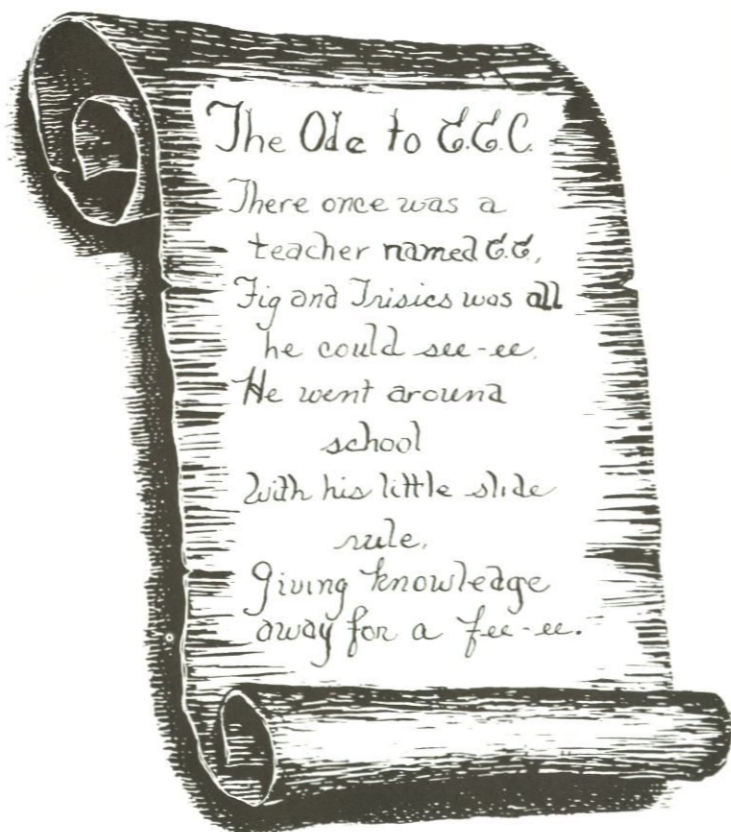 The Ode to E.E.C.
There once was a
teacher named E.E,
Fig and Trisics was all
he could see-ee.
He went around
school
With his little slide
rule,
Giving knowledge
away for a fee-ee.